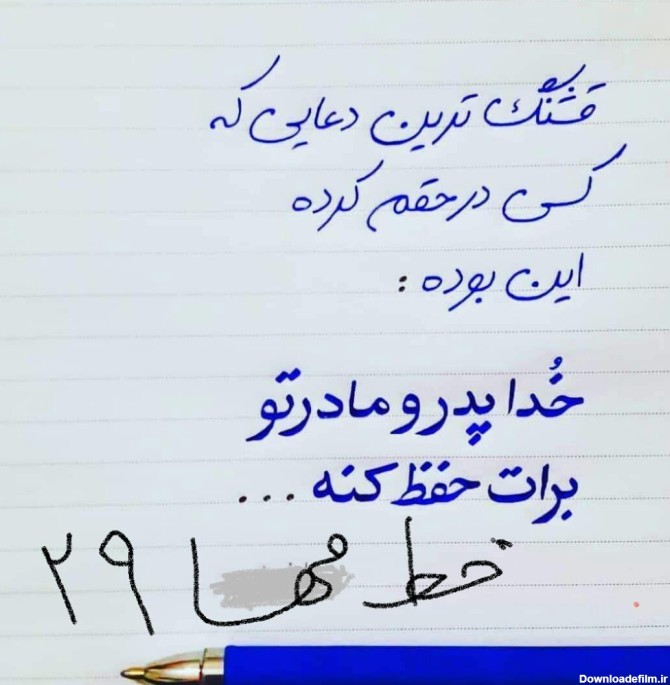 قشنگ ترین دعایی که
کسی در حقم کرده
این بوده :
خُدا پدر و مادرتو
برات حفظ کنه ...
خط مها ۲۹
Downloadefilm.ir